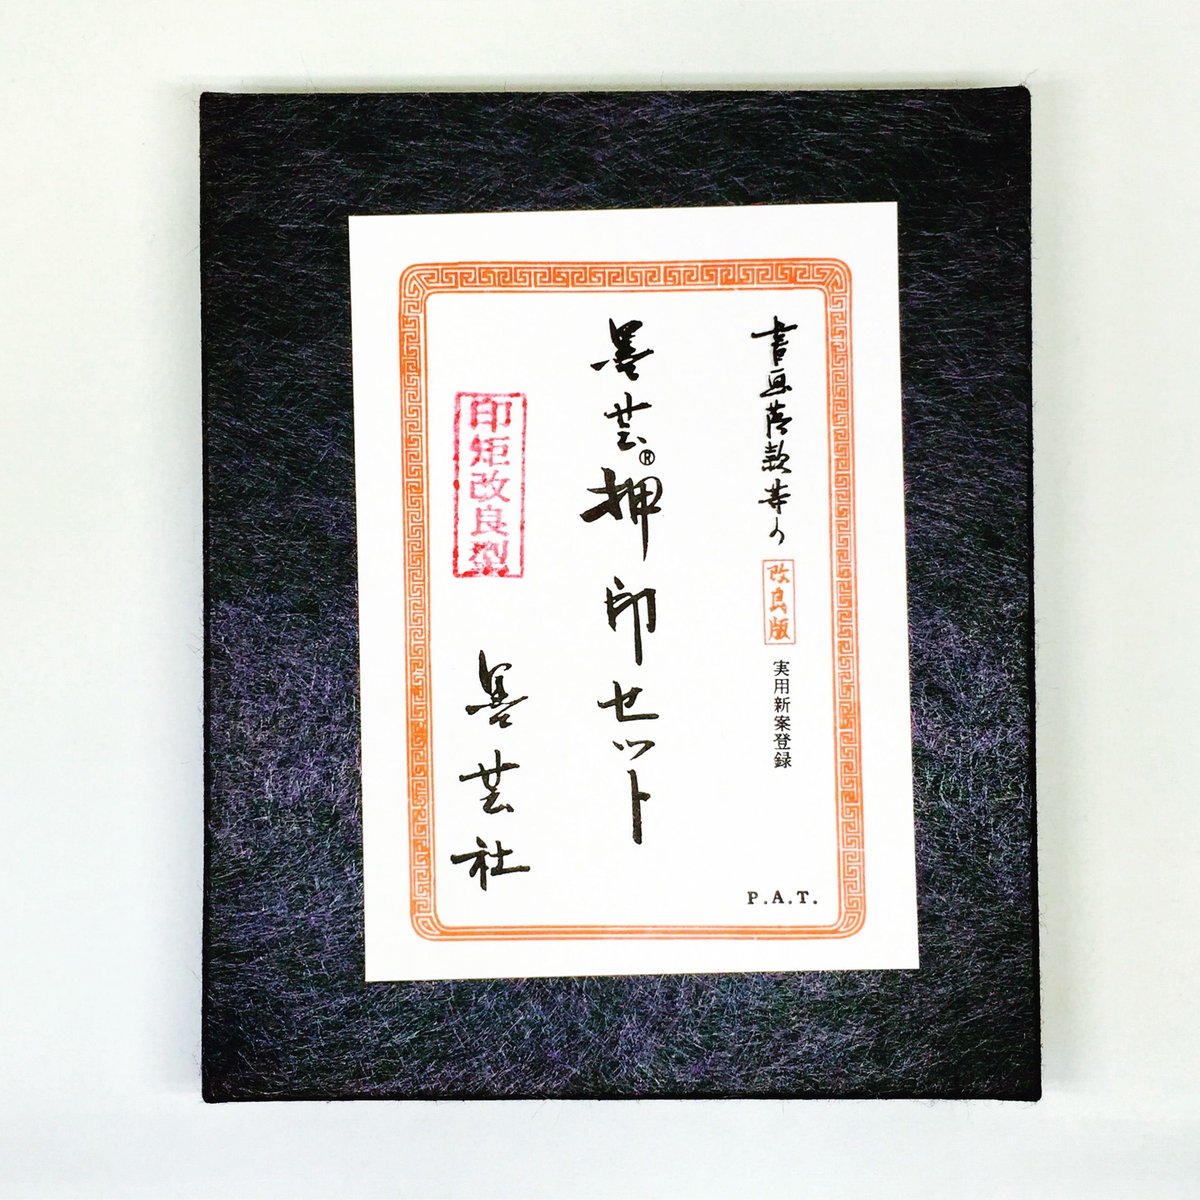 書画落款等の
改良版
実用新案登録
P.A.T.
墨芸®押印セット
印矩改良型
墨芸社